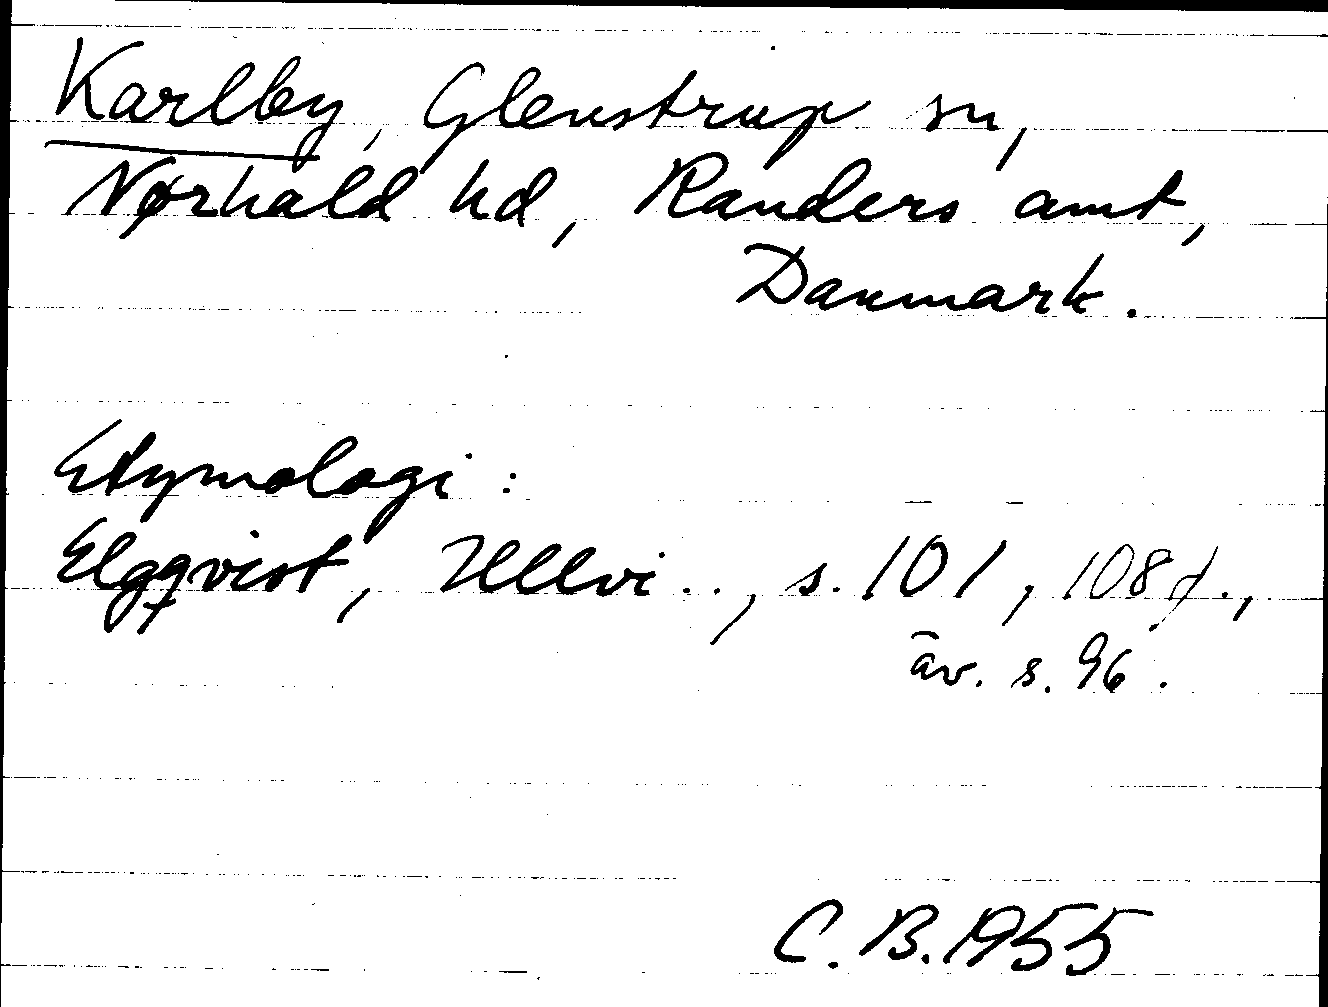 Karlby, Glenstrup sn,
Nørhald hd, Randers amt,
Danmark.
Etymologi:
Elgqvist, Ullvi.., s. 101, 108f.,
äv. s. 96.
C. B. 1955